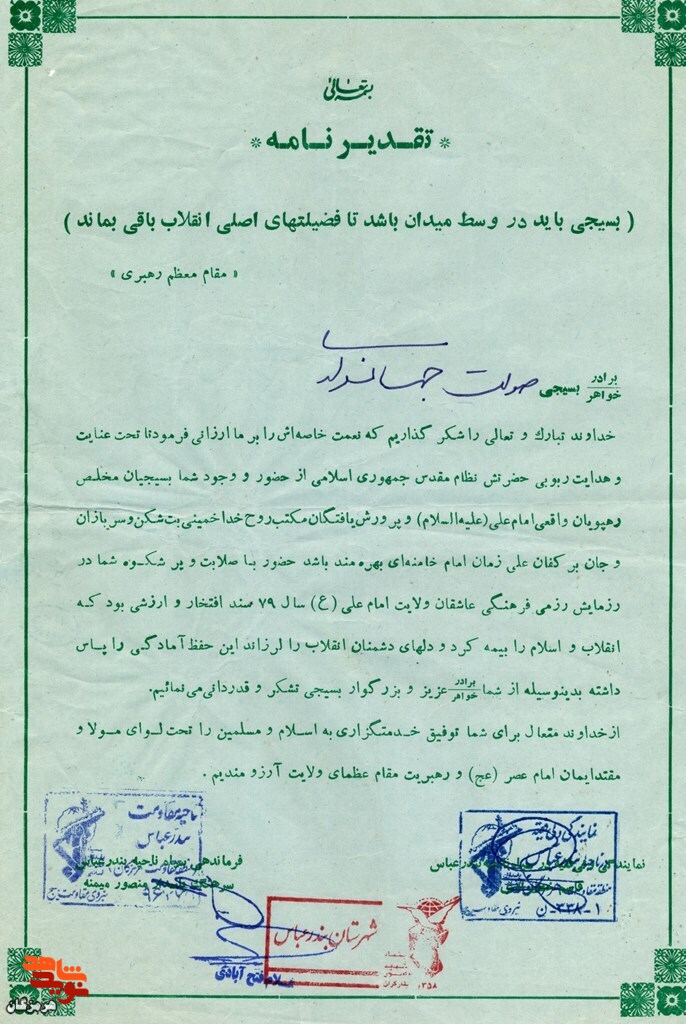 بسمه تعالی
* تقدیر نامه *
( بسیجی باید در وسط میدان باشد تا فضیلتهای اصلی انقلاب باقی بماند )
« مقام معظم رهبری »
برادر
خواهر بسیجی صولت جهانداری
خداوند تبارک و تعالی را شکر گذاریم که نعمت خاصه‌اش را بر ما ارزانی فرمود تا تحت عنایت
و هدایت ربوبی حضرتش نظام مقدس جمهوری اسلامی از حضور و وجود شما بسیجیان مخلص
رهپویان واقعی امام علی (علیه السلام) و پرورش یافتگان مکتب روح خدا خمینی بت شکن و سربازان
و جان بر کفان علی زمان امام خامنه‌ای بهره مند باشد حضور با صلابت و پر شکوه شما در
رزمایش رزمی فرهنگی عاشقان ولایت امام علی (ع) سال ۷۹ سند افتخار و ارزشی بود که
انقلاب و اسلام را بیمه کرد و دلهای دشمنان انقلاب را لرزاند این حفظ آمادگی را پاس
داشته بدینوسیله از شما برادر/خواهر عزیز و بزرگوار بسیجی تشکر و قدردانی می نمائیم.
از خداوند متعال برای شما توفیق خدمتگزاری به اسلام و مسلمین را تحت لوای مولا و
مقتدایمان امام عصر (عج) و رهبریت مقام عظمای ولایت آرزو مندیم .
ناحیه مقاومت
بندرعباس
نمایندگی ولی فقیه
فرماندهی ناحیه بندرعباس
منصور میمنه
ناحیه بندرعباس
نیروی مقاومت بسیج
۱-۳۳۸-ن
شهرستان بندرعباس
فتح آبادی
نوید شاهد
هرمزگان